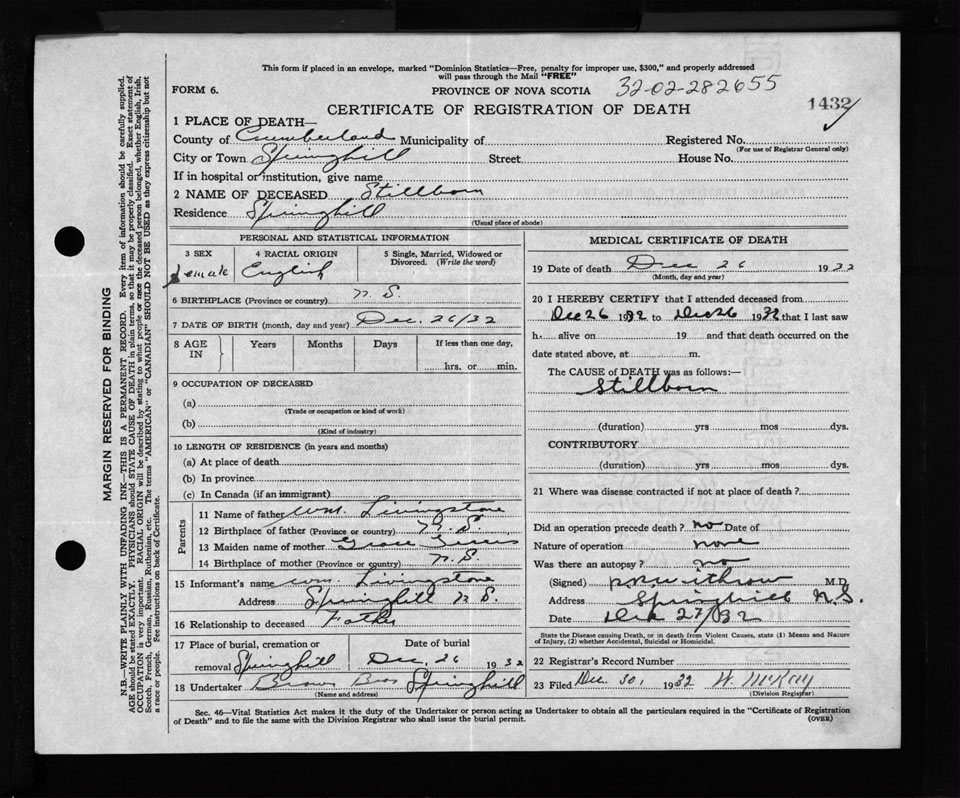 This form if placed in an envelope, marked "Dominion Statistics—Free, penalty for improper use, $300," and properly addressed
will pass through the Mail "FREE"
FORM 6.
PROVINCE OF NOVA SCOTIA
32-02-282655
CERTIFICATE OF REGISTRATION OF DEATH
1432
1 PLACE OF DEATH—
County of Cumberland Municipality of
Registered No.
(For use of Registrar General only)
City or Town Springhill Street House No.
If in hospital or institution, give name
2 NAME OF DECEASED Stillborn
Residence Springhill
(Usual place of abode)
PERSONAL AND STATISTICAL INFORMATION
3 SEX
female
4 RACIAL ORIGIN
English
5 Single, Married, Widowed or
Divorced. (Write the word)
6 BIRTHPLACE (Province or country) N.S.
7 DATE OF BIRTH (month, day and year) Dec. 26/32
8 AGE
IN
Years Months Days
If less than one day,
hrs. or min.
9 OCCUPATION OF DECEASED
(a)
(Trade or occupation or kind of work)
(b)
(Kind of industry)
10 LENGTH OF RESIDENCE (in years and months)
(a) At place of death
(b) In province
(c) In Canada (if an immigrant)
Parents
11 Name of father Wm. Livingstone
12 Birthplace of father (Province or country) N.S.
13 Maiden name of mother Grace
14 Birthplace of mother (Province or country) N.S.
15 Informant's name Wm. Livingstone
Address Springhill N.S.
16 Relationship to deceased Father
17 Place of burial, cremation or
removal Springhill
Date of burial
Dec. 26 1932
18 Undertaker Brown Bros Springhill
(Name and address)
MEDICAL CERTIFICATE OF DEATH
19 Date of death Dec 26 1932
(Month, day and year)
20 I HEREBY CERTIFY that I attended deceased from
Dec 26 1932 to Dec 26 1932 that I last saw
h alive on 19 and that death occurred on the
date stated above, at m.
The CAUSE of DEATH was as follows:—
Stillborn
(duration) yrs mos dys.
CONTRIBUTORY
(duration) yrs mos dys.
21 Where was disease contracted if not at place of death?
Did an operation precede death? no Date of
Nature of operation none
Was there an autopsy? no
(Signed) Withrow M.D.
Address Springhill N.S.
Date Dec 27/32
State the Disease causing Death, or in death from Violent Causes, state (1) Means and Nature
of Injury, (2) whether Accidental, Suicidal or Homicidal.
22 Registrar's Record Number
23 Filed Dec. 30, 1932 W. McKay
(Division Registrar)
Sec. 46—Vital Statistics Act makes it the duty of the Undertaker or person acting as Undertaker to obtain all the particulars required in the "Certificate of Registration
of Death" and to file the same with the Division Registrar who shall issue the burial permit.
(OVER)
MARGIN RESERVED FOR BINDING
N.B.—WRITE PLAINLY WITH UNFADING INK—THIS IS A PERMANENT RECORD. Every item of information should be carefully supplied.
AGE should be stated EXACTLY. PHYSICIANS should STATE CAUSE OF DEATH in plain terms, so that it may be properly classified. Exact statement of
OCCUPATION is very important. RACIAL ORIGIN will be described by stating to what people or race the deceased person belonged, whether English, Irish,
Scotch, French, German, Russian, Ruthenian, etc. The terms "AMERICAN" or "CANADIAN" SHOULD NOT BE USED as they express citizenship but not
a race or people. See instructions on back of Certificate.